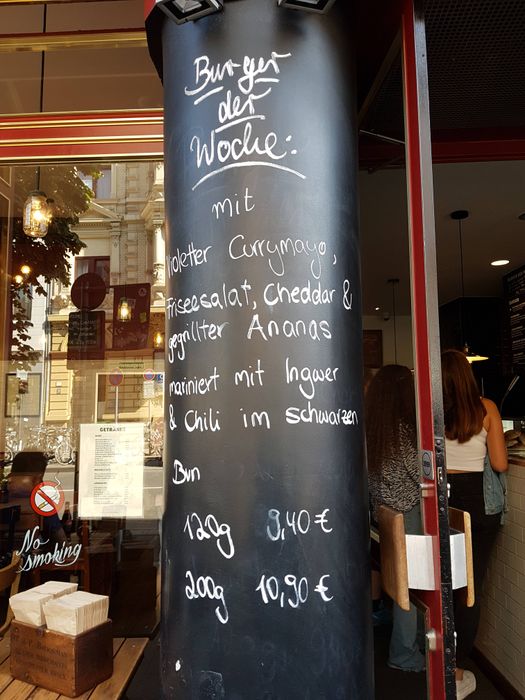 Burger
der
Woche:
mit
violetter Currymayo,
Friseesalat, Cheddar &
gegrillter Ananas
mariniert mit Ingwer
& Chili im schwarzen
Bun
120g 9,40 €
200g 10,90 €
GETRÄNKE
No
smoking